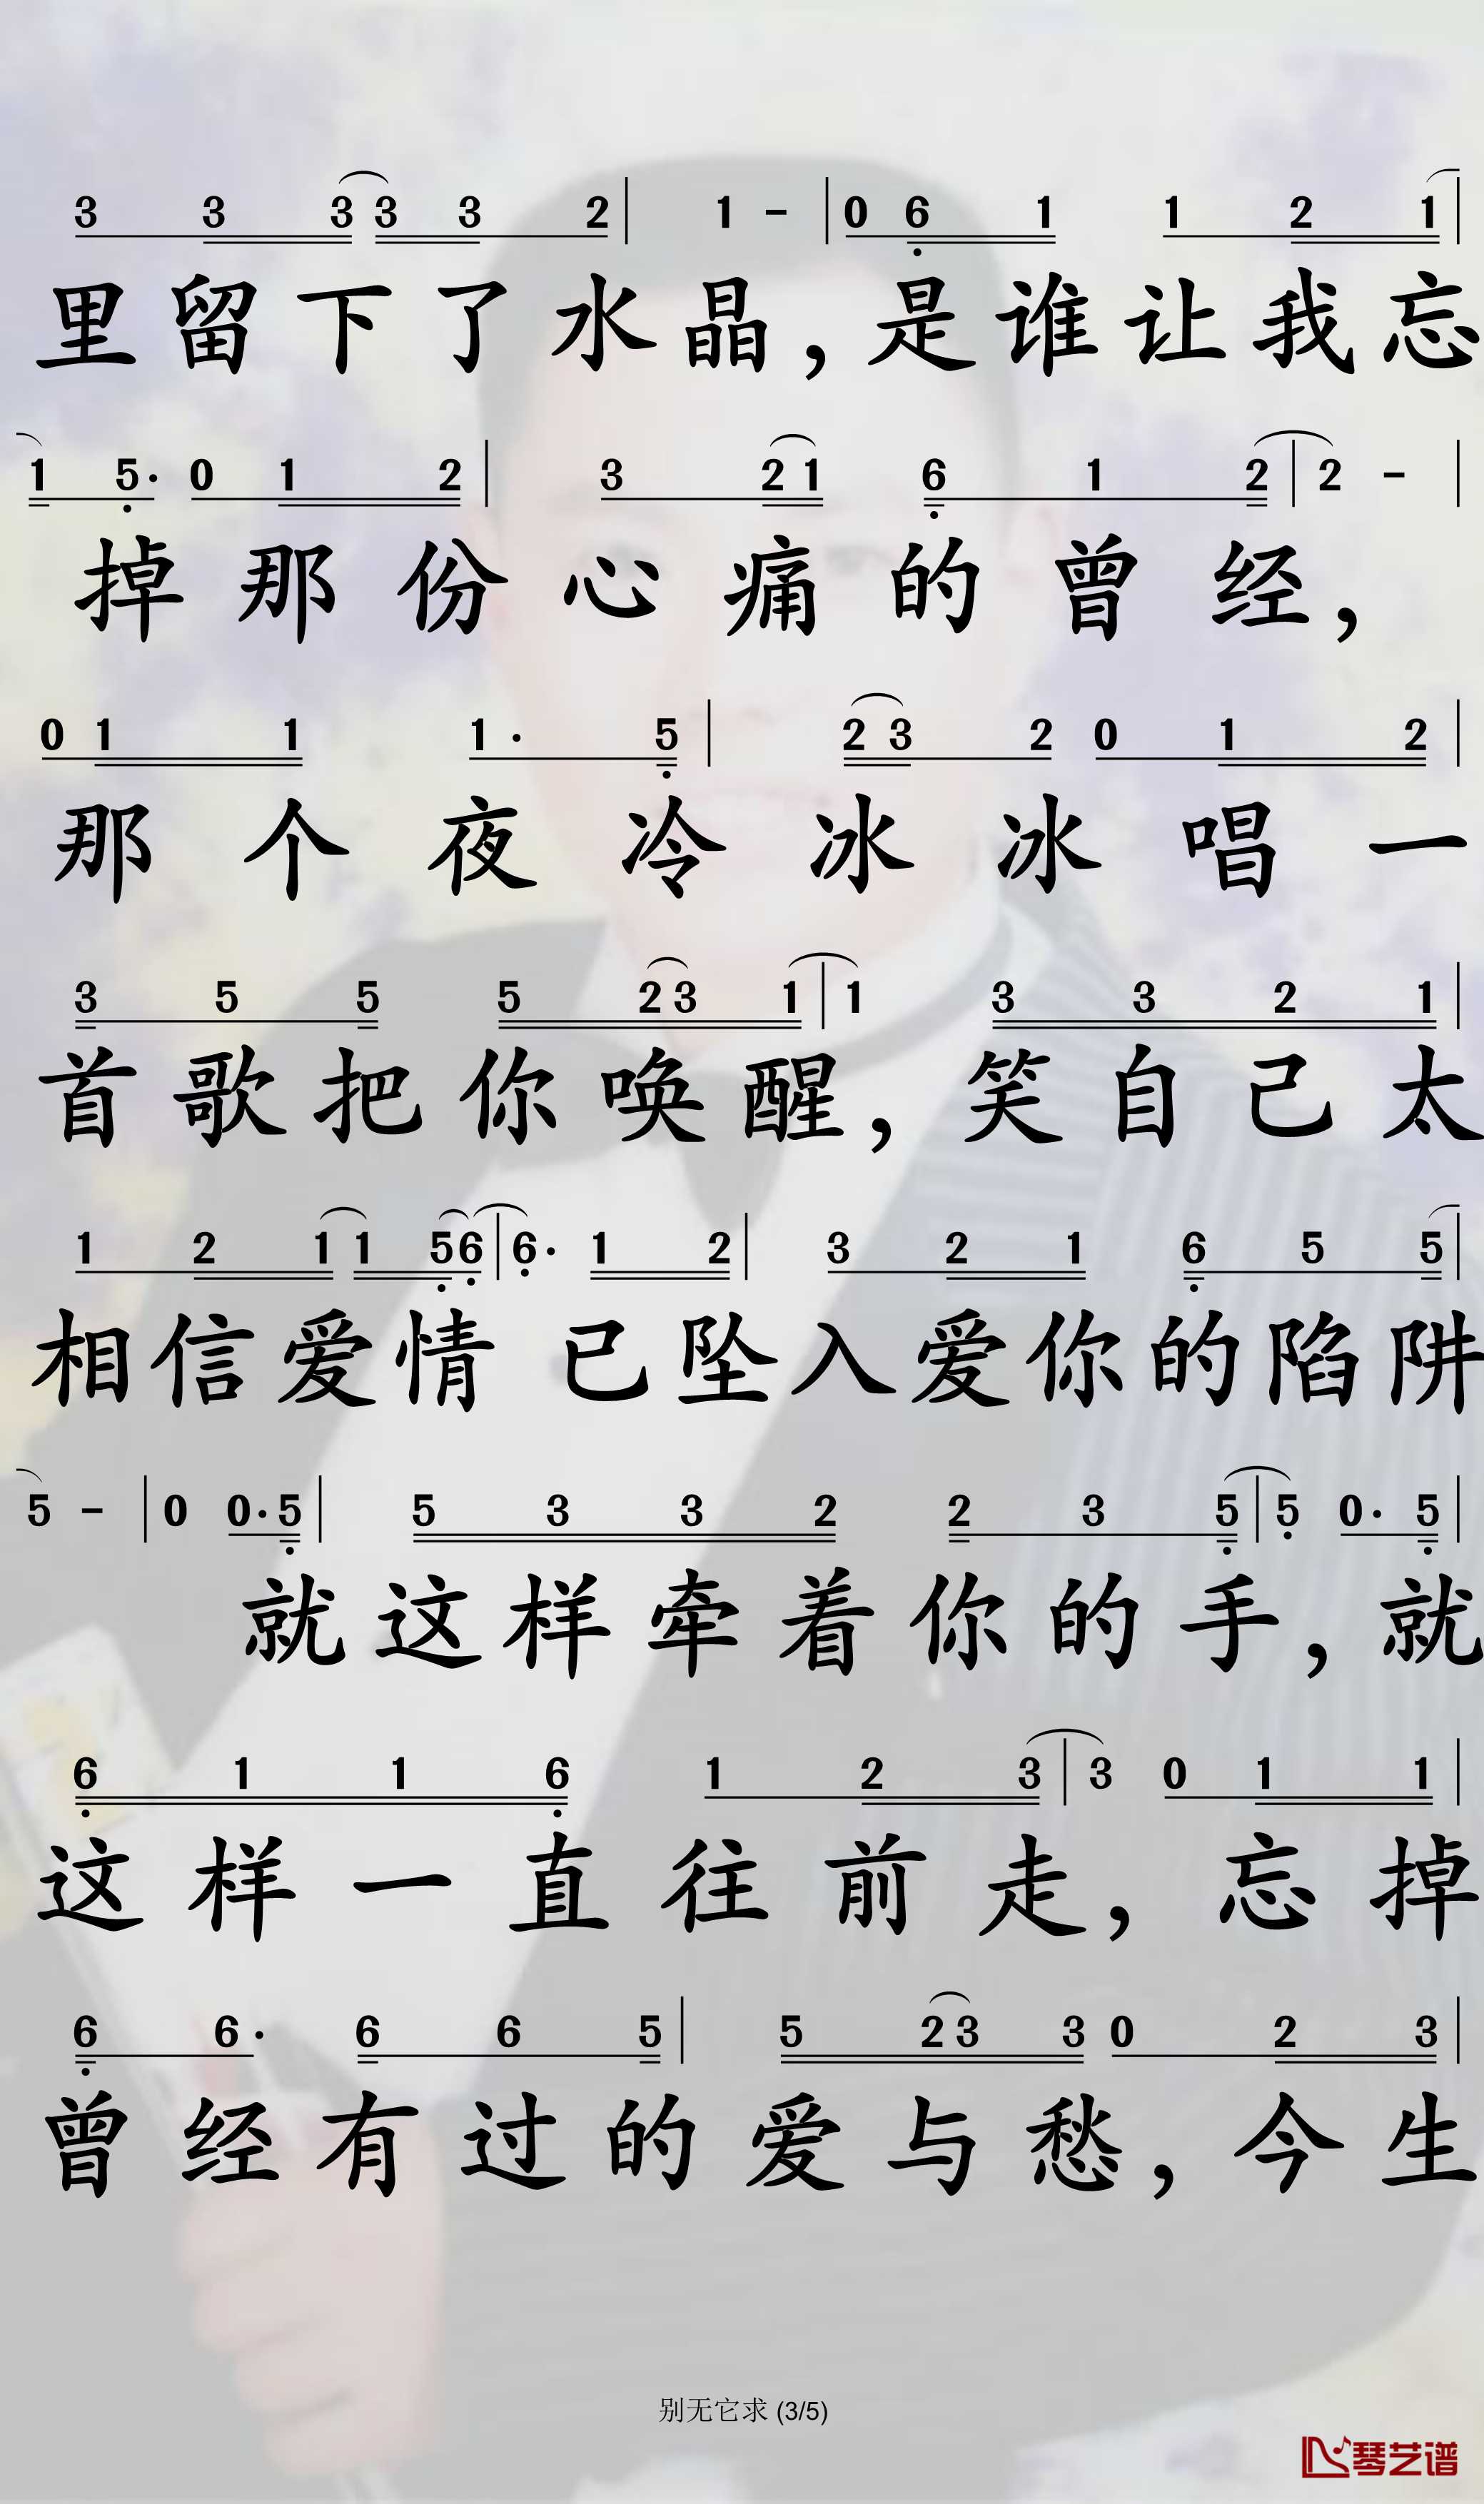 3 3 3 3 3 2 | 1 - | 0 6 1 1 2 1 |
里留下了水晶,是谁让我忘
1 5· 0 1 2 | 3 2 1 6 1 2 | 2 - |
掉那份心痛的曾经,
0 1 1 1· 5 | 2 3 2 0 1 2 |
那个夜冷冰冰唱一
3 5 5 5 2 3 1 | 1 3 3 2 1 |
首歌把你唤醒,笑自己太
1 2 1 1 5 6 | 6· 1 2 | 3 2 1 6 5 5 |
相信爱情已坠入爱你的陷阱
5 - | 0 0· 5 | 5 3 3 2 2 3 5 | 5 0· 5 |
就这样牵着你的手,就
6 1 1 6 1 2 3 | 3 0 1 1 |
这样一直往前走,忘掉
6 6· 6 6 5 | 5 2 3 3 0 2 3 |
曾经有过的爱与愁,今生
别无它求 (3/5)
琴艺谱